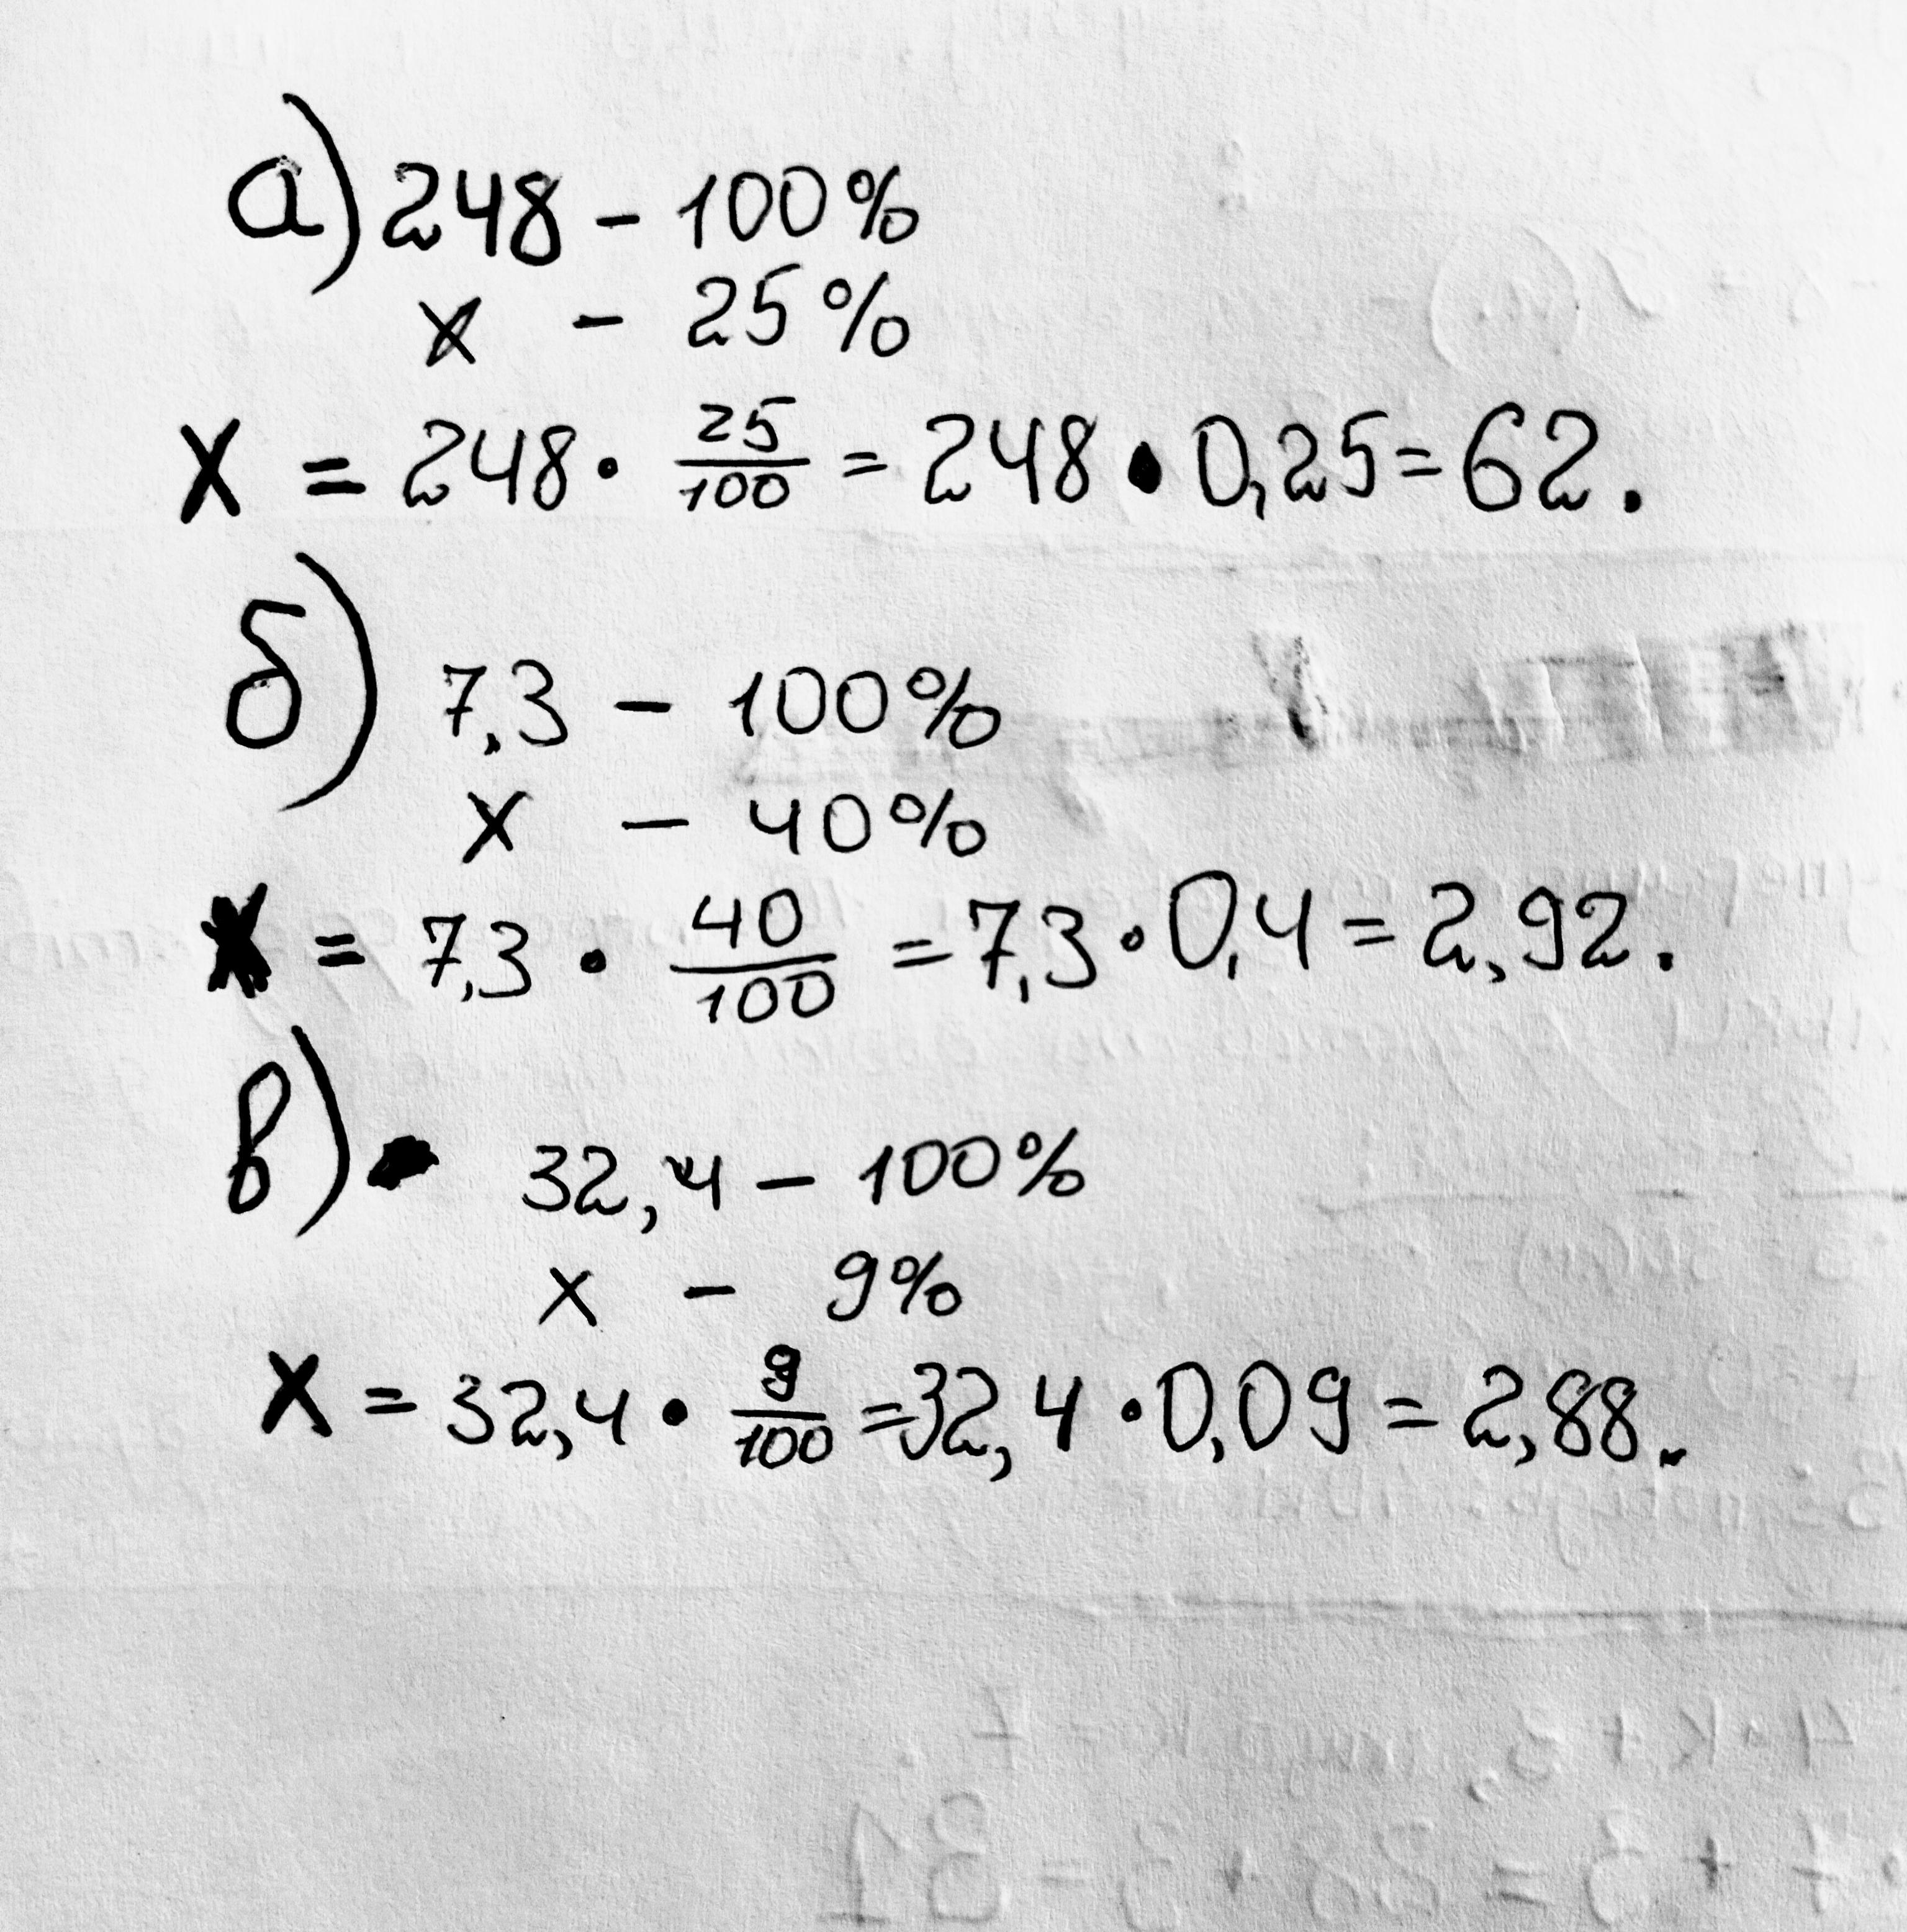 а) 248 - 100%
x - 25%
X = 248 · 25/100 = 248 · 0,25 = 62.
б) 7,3 - 100%
x - 40%
X = 7,3 · 40/100 = 7,3 · 0,4 = 2,92.
в) 32,4 - 100%
x - 9%
X = 32,4 · 9/100 = 32,4 · 0,09 = 2,88.